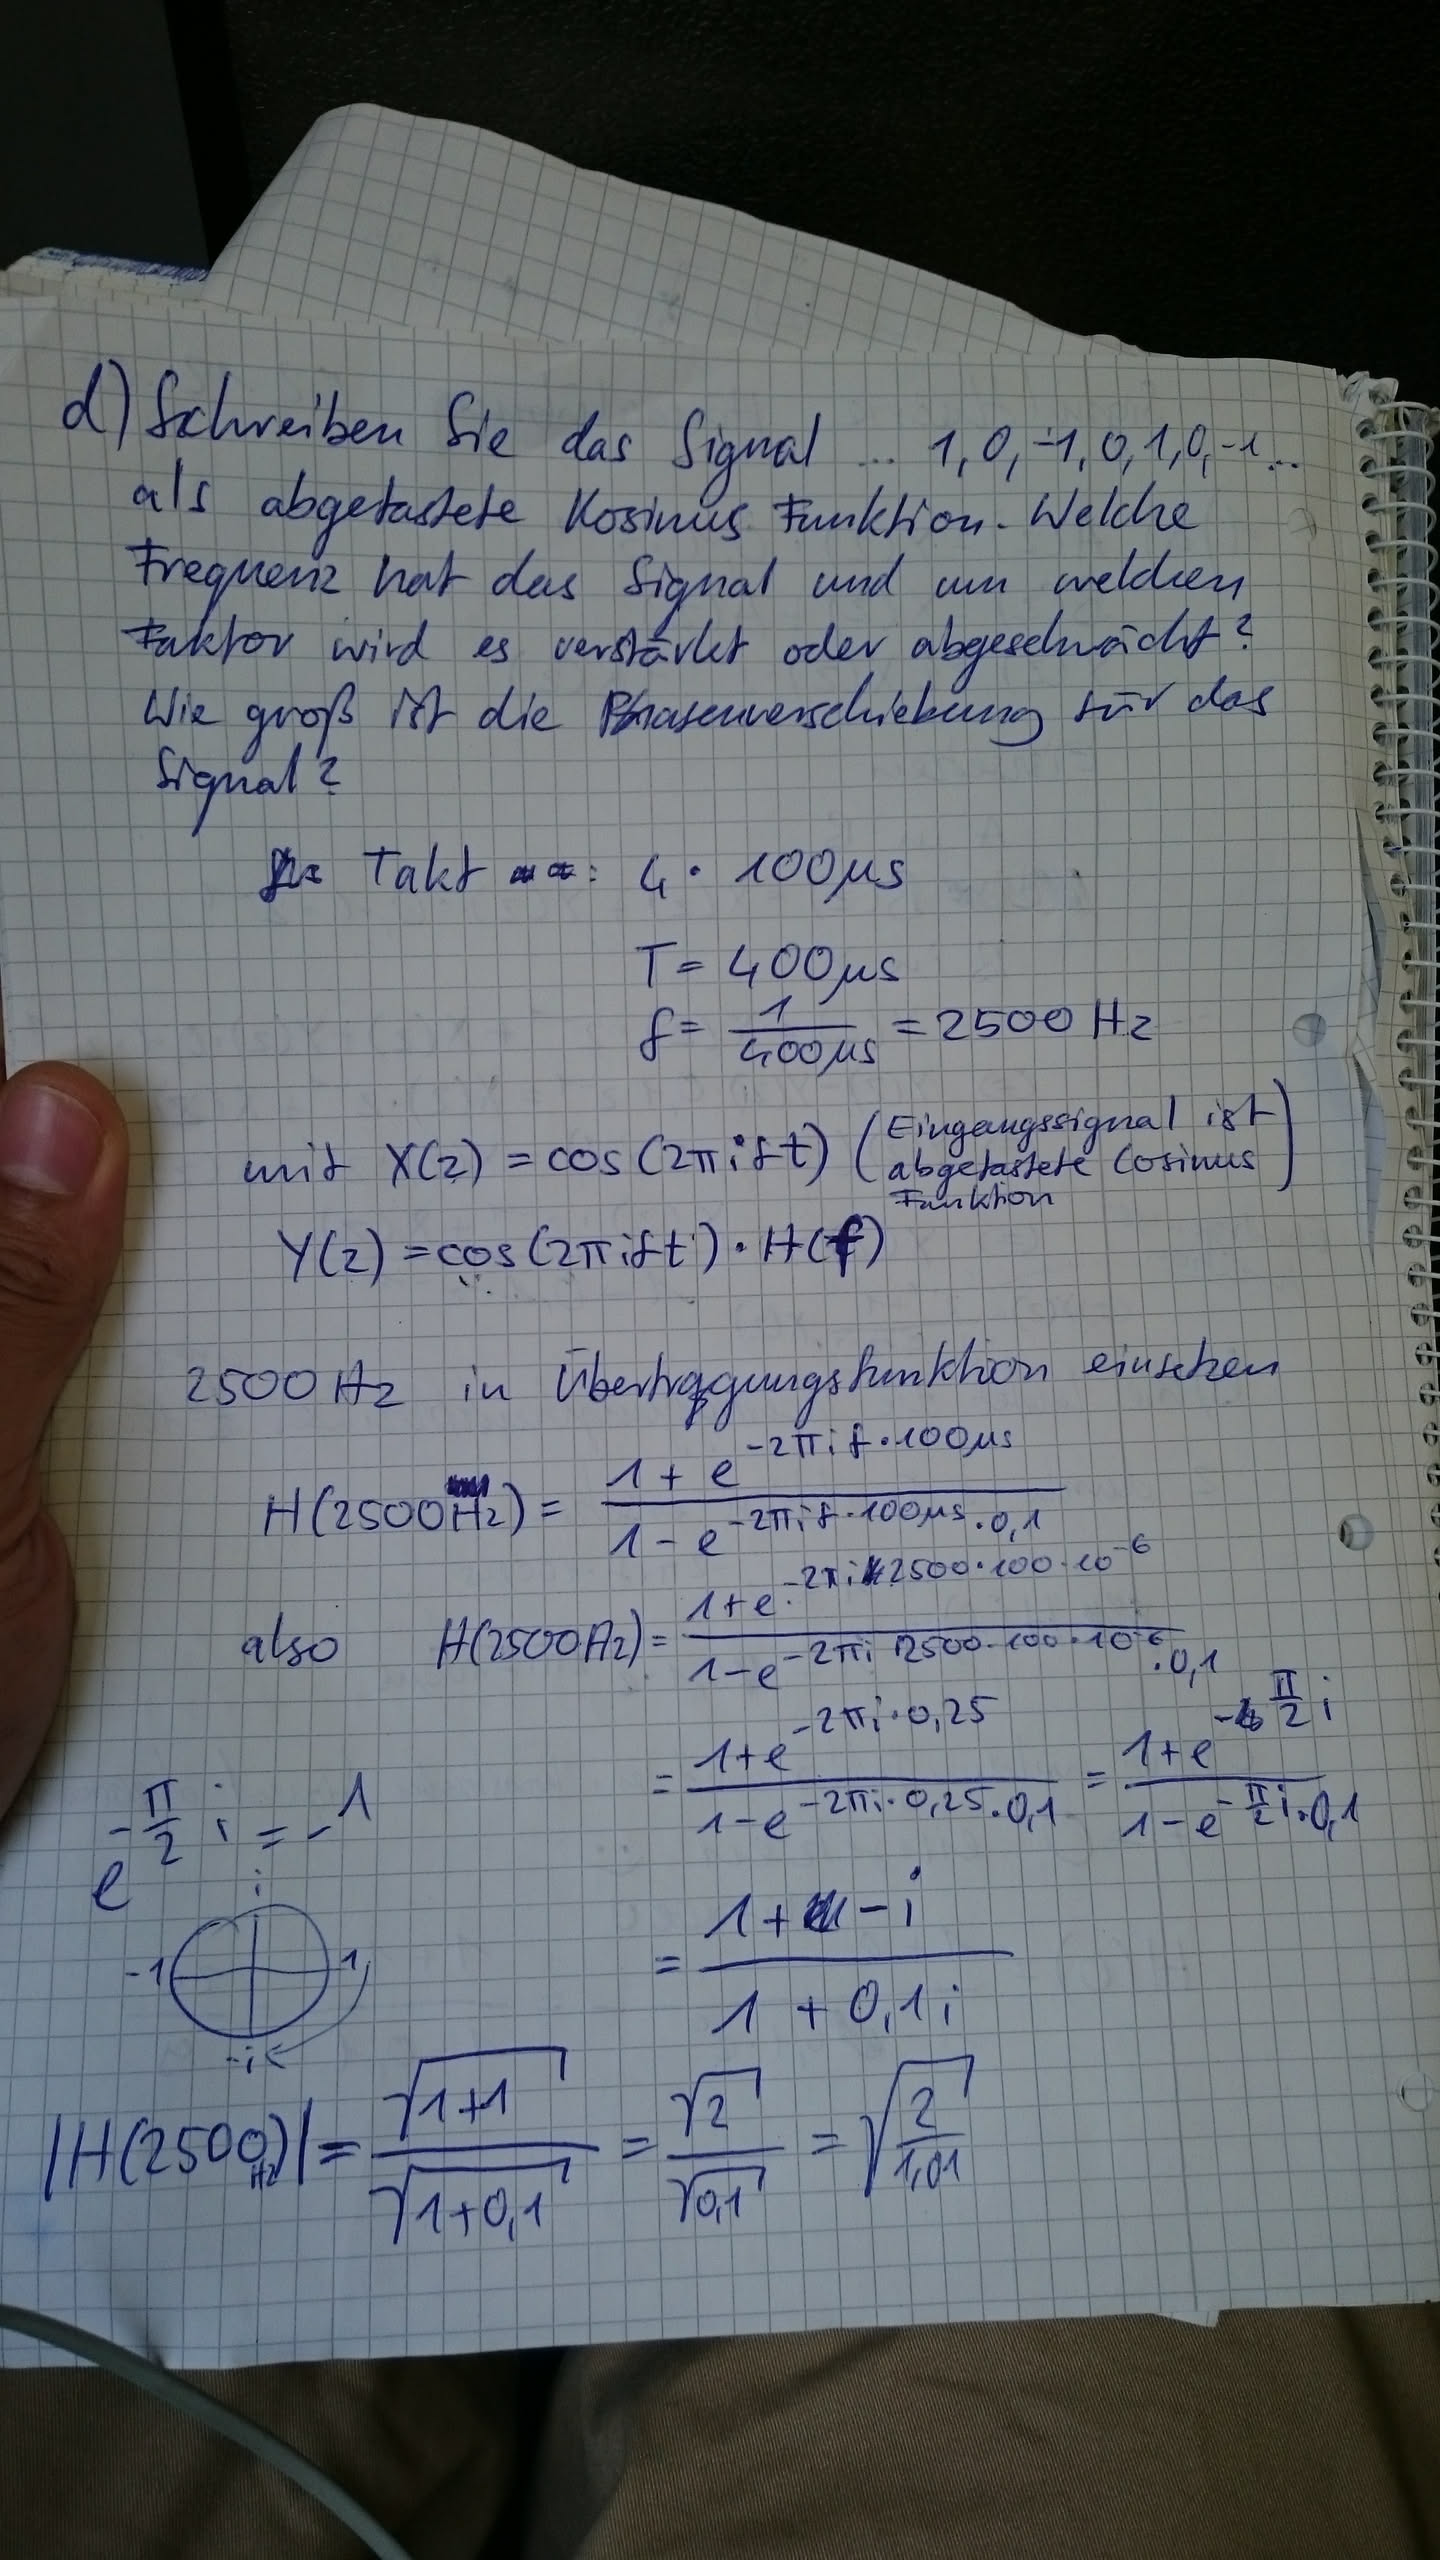 d) Schreiben Sie das Signal ... 1,0,-1,0,1,0,-1...
als abgetastete Kosinus Funktion. Welche
Frequenz hat das Signal und um welchen
Faktor wird es verstärkt oder abgeschwächt?
Wie groß ist die Phasenverschiebung für das
Signal?
Takt : 4 · 100µs
T = 400µs
f = 1/400µs = 2500 Hz
mit X(z) = cos(2πift) (Eingangssignal ist
abgetastete Cosinus
Funktion)
Y(z) = cos(2πift) · H(f)
2500 Hz in Übertragungsfunktion einsetzen
H(2500Hz) = (1 + e^(-2πif·100µs)) / (1 - e^(-2πif·100µs) · 0,1)
also H(2500Hz) = (1+e^(-2πi·2500·100·10^-6)) / (1-e^(-2πi·2500·100·10^-6) · 0,1)
= (1+e^(-2πi·0,25)) / (1-e^(-2πi·0,25) · 0,1) = (1+e^(-π/2 i)) / (1-e^(-π/2 i) · 0,1)
e^(-π/2 i) = -1
= (1 - i) / (1 + 0,1i)
i
-1 1
-i
|H(2500Hz)| = √(1+1) / √(1+0,1) = √2 / √0,1 = √(2/1,01)